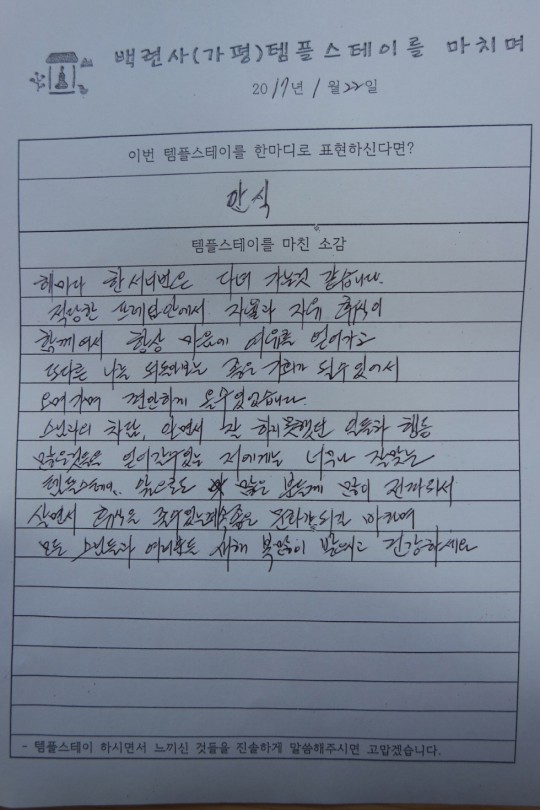 백련사(가평)템플스테이를 마치며
2017년 1월 22일
이번 템플스테이를 한마디로 표현하신다면?
안식
템플스테이를 마친 소감
해마다 한 서너번은 다녀 가는것 같습니다.
적당한 프레임안에서 자율과 자유 휴식이
함께여서 항상 마음에 여유를 얻어가고
또다른 나를 되돌아보는 좋은 기회가 될수 있어서
오며가며 편안하게 올수있었습니다.
스님과의 차담, 안면서 잘 하지못했던 행동
많은것들을 얻어갈수있는 저에게는 너무나 잘맞는
템플스테이. 앞으로도 많은 분들께 많이 전파되서
살면서 휴식을 좋은 문화가 되길 바라며
모든 스님들과 여러분들 새해 복많이 받으시고 건강하세요
- 템플스테이 하시면서 느끼신 것들을 진솔하게 말씀해주시면 고맙겠습니다.